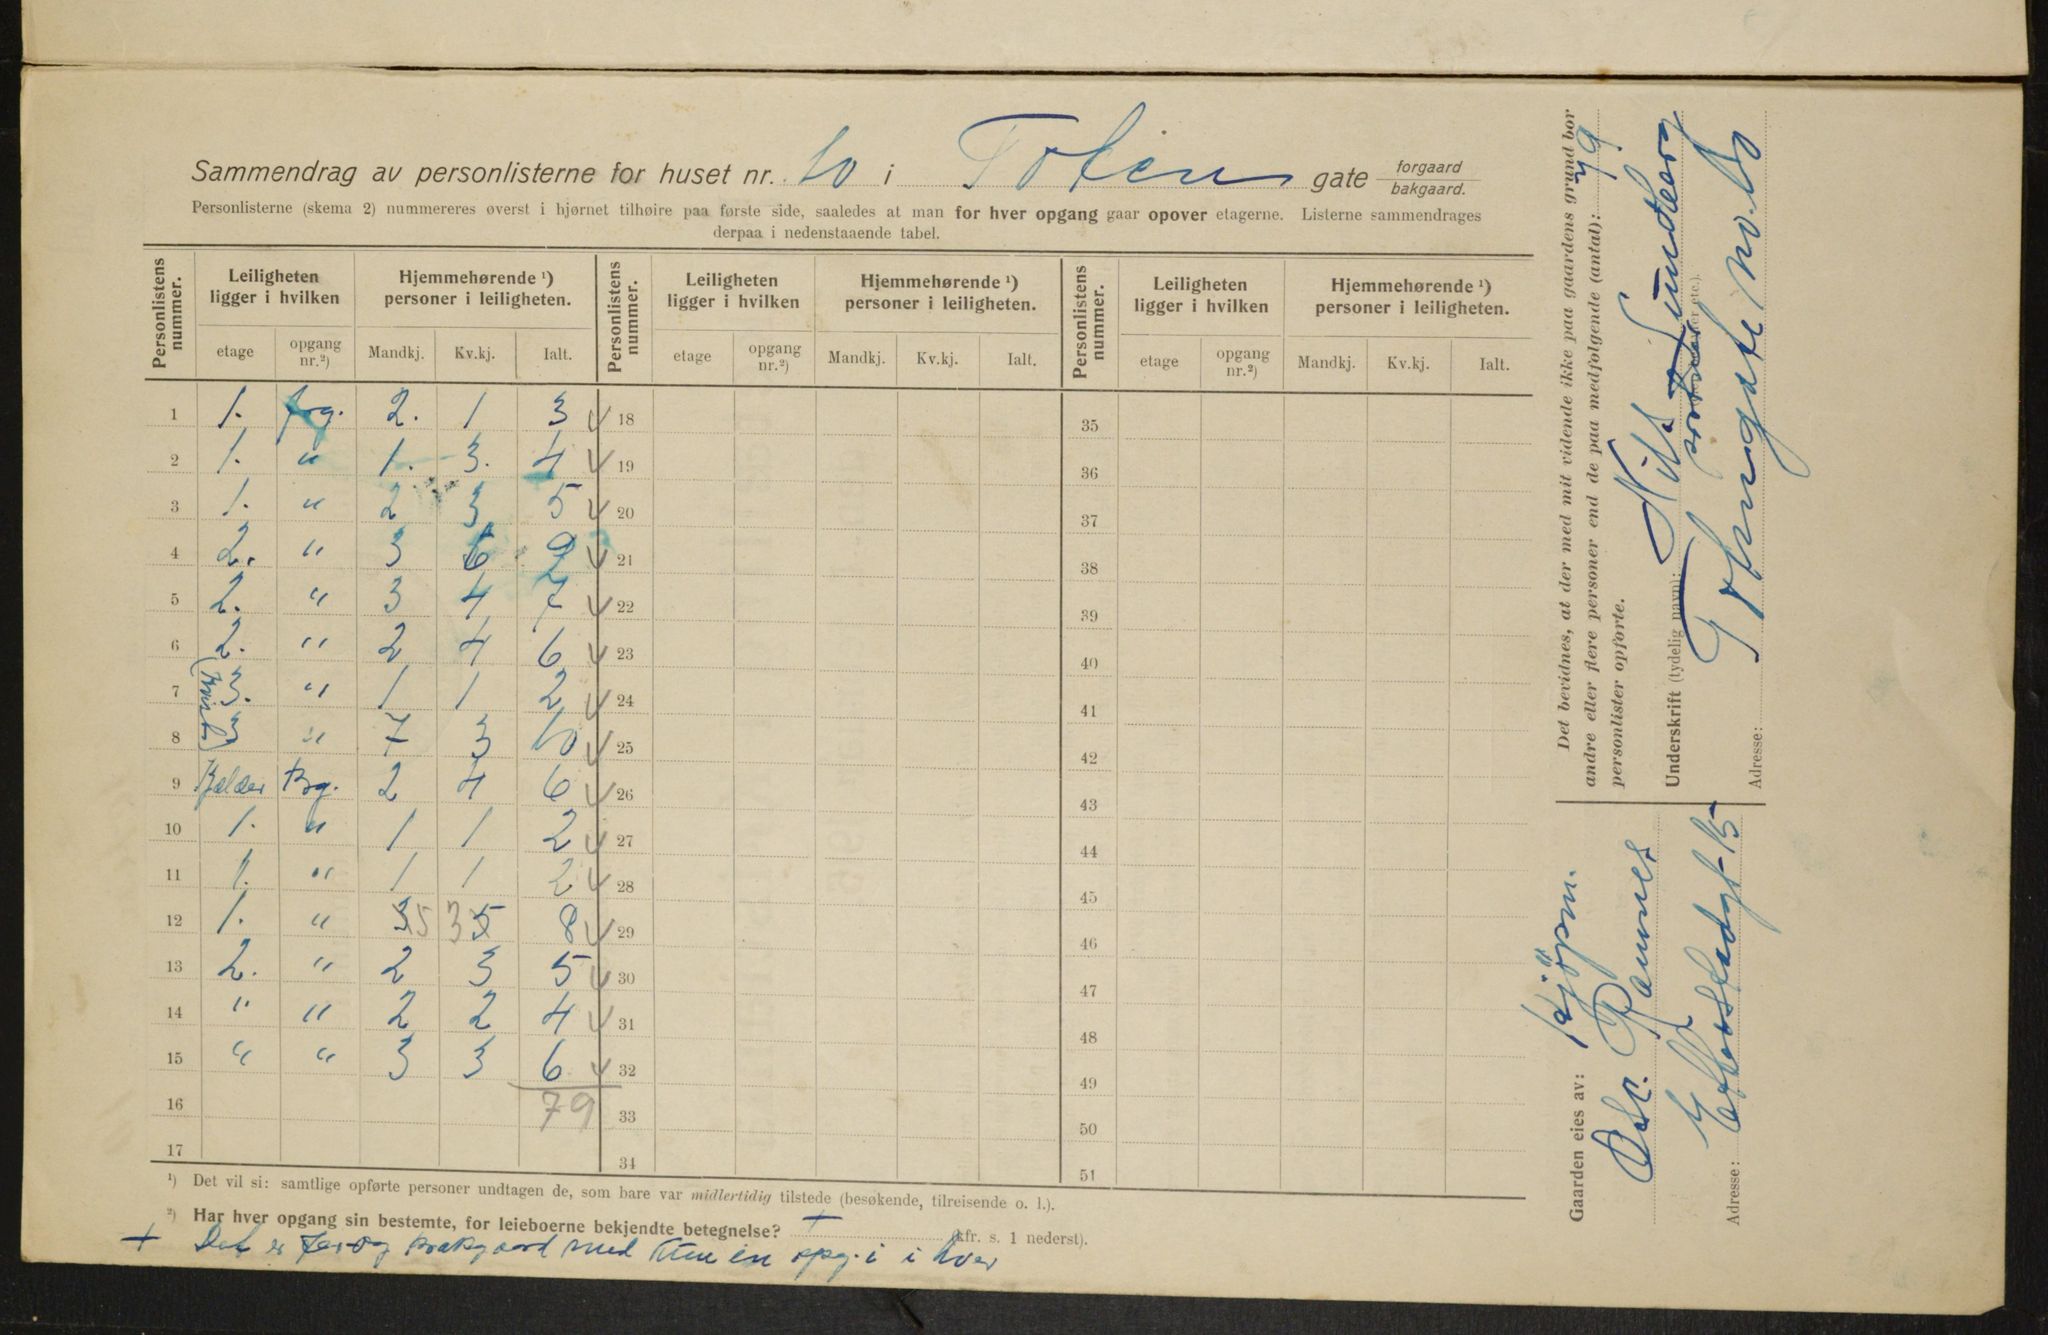 Sammendrag av personlisterne for huset nr. 10 i Toten gate forgaard bakgaard.
Personlisterne (skema 2) nummereres øverst i hjørnet tilhøire paa første side, saaledes at man for hver opgang gaar opover etagerne. Listerne sammendrages
derpaa i nedenstaaende tabel.
Personlistens nummer. Leiligheten ligger i hvilken Hjemmehørende ¹) personer i leiligheten. Personlistens nummer. Leiligheten ligger i hvilken Hjemmehørende ¹) personer i leiligheten. Personlistens nummer. Leiligheten ligger i hvilken Hjemmehørende ¹) personer i leiligheten.
etage opgang nr.²) Mandkj. Kv.kj. Ialt. etage opgang nr.²) Mandkj. Kv.kj. Ialt. etage opgang nr.²) Mandkj. Kv.kj. Ialt.
1 1. forg. 2. 1 3 18 35
2 1. " 1. 3. 4 19 36
3 1. " 2 3 5 20 37
4 2. " 3 6 9 21 38
5 2. " 3 4 7 22 39
6 2. " 2 4 6 23 40
7 (Kvist 3. " 1 1 2 24 41
8 3 " 7 3 10 25 42
9 Kjelder Bg. 2 4 6 26 43
10 1. " 1 1 2 27 44
11 1. " 1 1 2 28 45
12 1. " 3 5 3 5 8 29 46
13 2. " 2 3 5 30 47
14 " " 2 2 4 31 48
15 " " 3 3 6 32 49
16 79 33 50
17 34 51
¹) Det vil si: samtlige opførte personer undtagen de, som bare var midlertidig tilstede (besøkende, tilreisende o. l.).
²) Har hver opgang sin bestemte, for leieboerne bekjendte betegnelse? + (kfr. s. 1 nederst).
+ Det er for og bakgaard med kun en opg. i i hver
Det bevidnes, at der med mit vidende ikke paa gaardens grund bor
andre eller flere personer end de paa medfølgende (antal): 79
personlister opførte.
Underskrift (tydelig navn): Nils Lundberg
Adresse: Totengate No. 10
Gaarden eies av: Kjøpm.
Adresse: